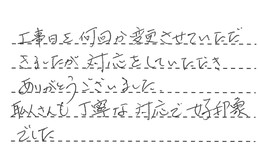 工事日を何回か変更させていただ
きましたが対応をしていただき
ありがとうございました
職人さんも丁寧な対応で好印象
でした